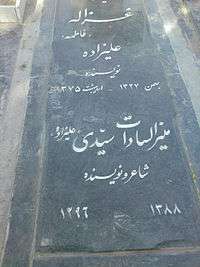 غزاله
(فاطمه)
علیزاده
نویسنده
بهمن ۱۳۲۷ - اردیبهشت ۱۳۷۵
منیرالسادات سیدی (علیزاده)
شاعر و نویسنده
۱۲۹۶ ۱۳۸۸